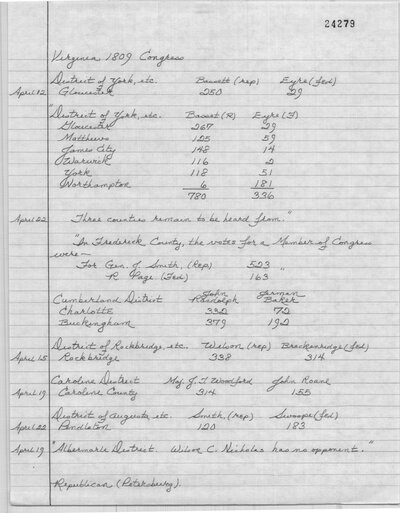 24279
Virginia 1809 Congress
District of York, etc. Bassett (rep) Eyre (fed)
April 12 Gloucester 250 29
"District of York, etc. Basset (R) Eyre (F)
Gloucester 267 29
Matthews 125 59
James City 148 14
Warwick 116 2
York 118 51
Northampton 6 181
780 336
April 22 Three counties remain to be heard from."
"In Frederick County, the votes for a Member of Congress
were—
For Gen. J. Smith, (Rep) 523
R. Page (Fed) 163 "
Cumberland District John Randolph Jerman Baker
Charlotte 332 72
Buckingham 379 192
District of Rockbridge, etc. Wilson (rep) Breckenridge (fed)
April 15 Rockbridge 338 314
Caroline District Maj J. T. Woodford John Roane
April 19 Caroline County 314 155
District of Augusta, etc. Smith (rep) Swoope (fed)
April 22 Pendleton 120 183
April 19 "Albemarle District. Wilson C. Nicholas has no opponent."
Republican (Petersburg).